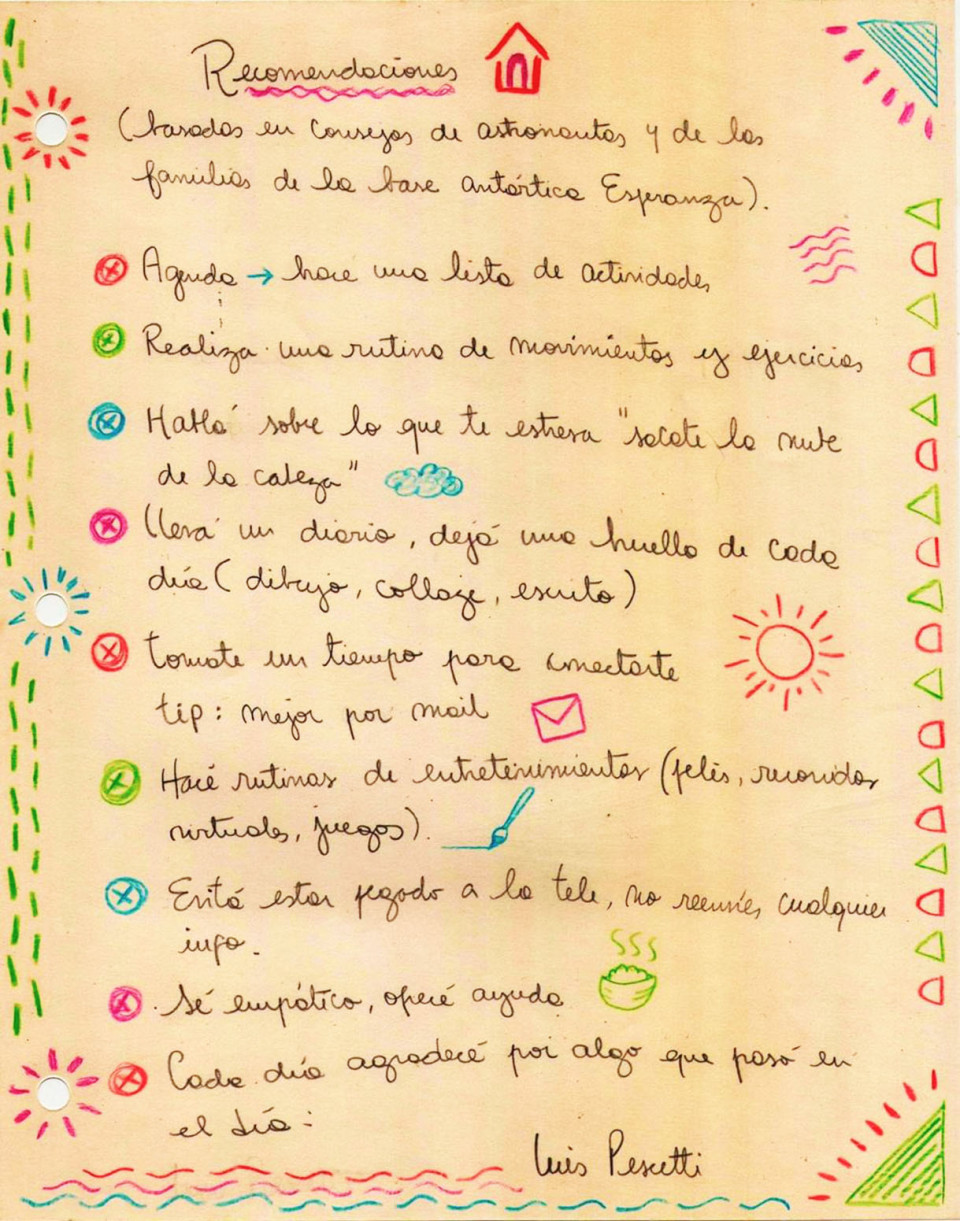 Recomendaciones
(basadas en consejos de astronautas y de las
familias de la base antártica Esperanza).
Agenda → hacé una lista de actividades
Realiza una rutina de movimientos y ejercicios
Hablá sobre lo que te estresa "sacate la nube
de la cabeza"
Llevá un diario, dejá una huella de cada
día (dibujo, collage, escrito)
Tomate un tiempo para conectarte
tip: mejor por mail
Hacé rutinas de entretenimientos (pelis, recorridos
virtuales, juegos).
Evitá estar pegado a la tele, no reenvíes cualquier
info.
Sé empático, ofrecé ayuda
Cada día agradecé por algo que pasó en
el día.
Luis Pescetti